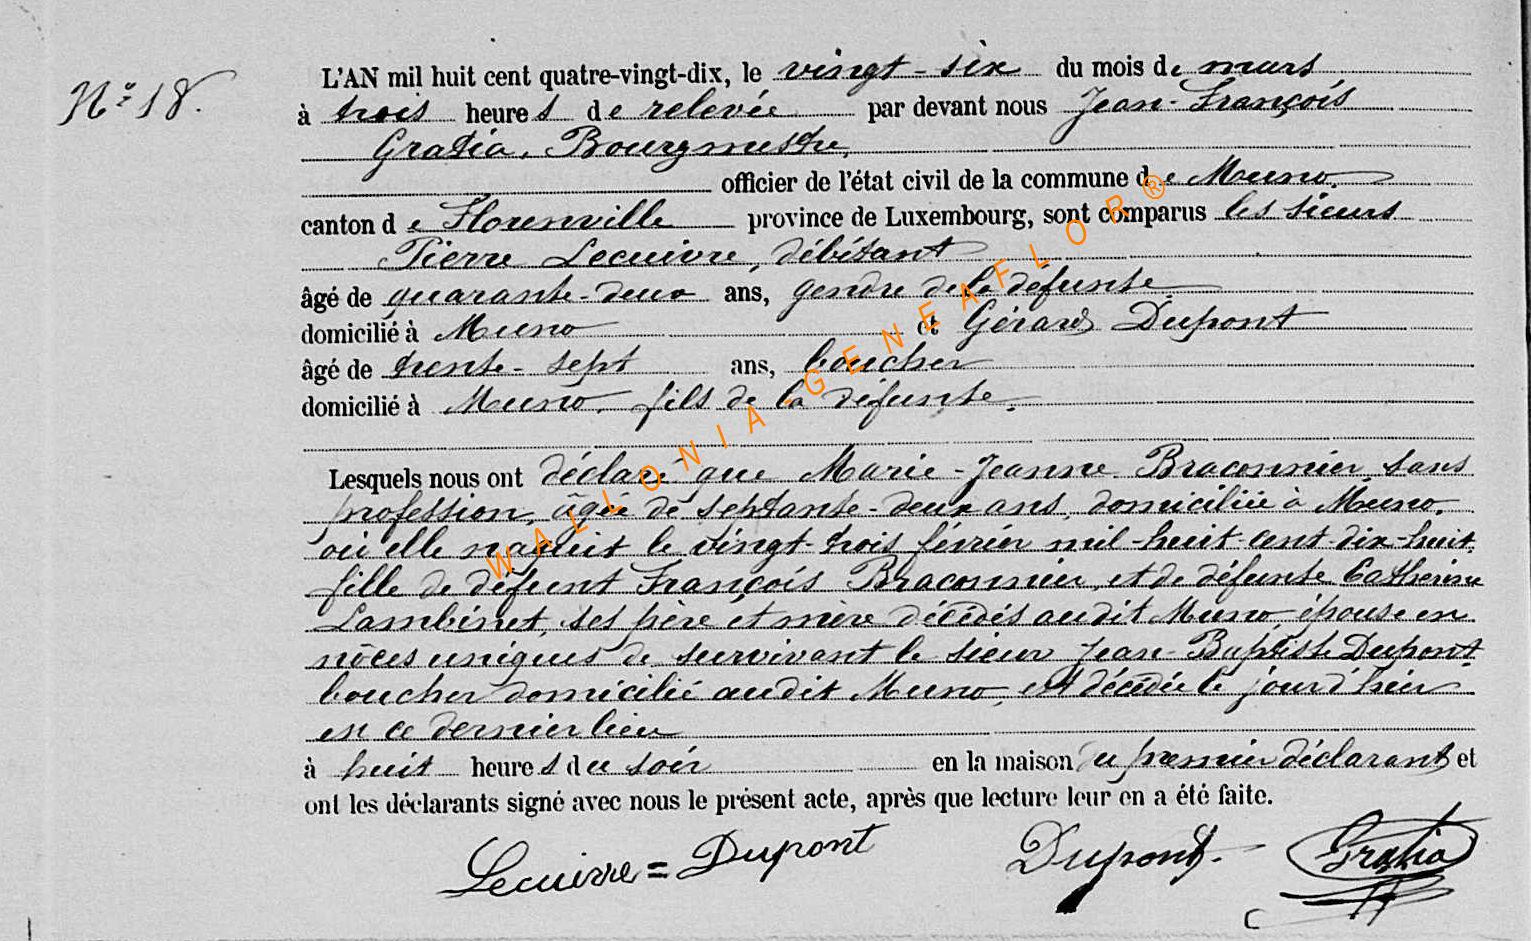 N° 18.
L'AN mil huit cent quatre-vingt-dix, le vingt-six du mois de mars
à trois heures de relevée par devant nous Jean-François
Gratia, Bourgmestre,
officier de l'état civil de la commune de Muno,
canton de Florenville province de Luxembourg, sont comparus les sieurs
Pierre Lecuivre, débitant
âgé de quarante-deux ans, gendre de la défunte
domicilié à Muno et Gérard Dupont
âgé de trente-sept ans, boucher
domicilié à Muno, fils de la défunte.
Lesquels nous ont déclaré que Marie-Jeanne Braconnier sans
profession, âgée de septante-deux ans, domiciliée à Muno,
où elle naquit le vingt-trois février mil-huit-cent-dix-huit,
fille de défunt François Braconnier, et de défunte Catherine
Lambinet, ses père et mère décédés audit Muno, épouse en
nôces uniques de survivant le sieur Jean-Baptiste Dupont
boucher domicilié audit Muno, est décédée le jour d'hier
en ce dernier lieu
à huit heures du soir en la maison du premier déclarant et
ont les déclarants signé avec nous le présent acte, après que lecture leur en a été faite.
Lecuivre=Dupont Dupont. Gratia
WALLONIA-GENEAFLOR®